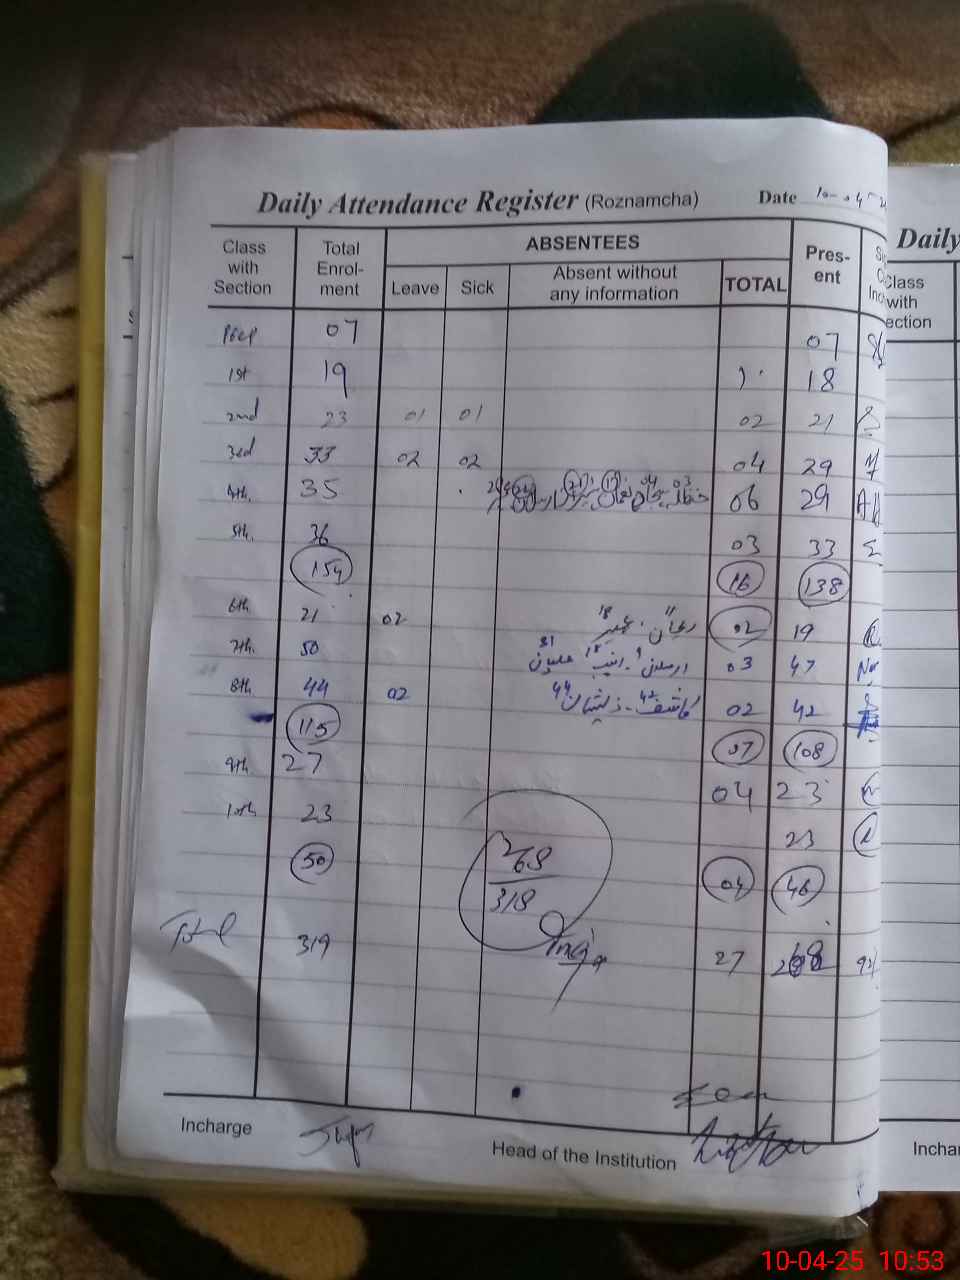 Daily Attendance Register (Roznamcha) Date 10-04-
Class with Section Total Enrol-ment ABSENTEES Pres-ent
Leave Sick Absent without any information TOTAL
07 07
1st 19 18
2nd 23 01 01 02 21
3rd 33 02 02 04 29
4th. 35 06 29
5th. 36 03 33
154 16 138
6th 21 02 02 19
7th. 50 03 47
8th 44 02 کاشف 42 ذیشان 44 02 42
115 07 108
9th 27 04 23
10th 23 23
50 04 46
268
318
Total 319 27
Incharge
Head of the Institution
Daily
Class with ection
Inchar
10-04-25 10:53